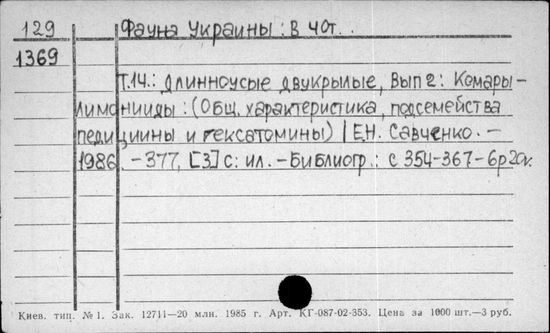 129 Фауна Украины: В 40т.
1369
Т.14.: Длинноусые двукрылые, Вып 2: Комары-
лимонииды: (Общ. характеристика, подсемейства
педициины и гексатомины) / Е.Н. Савченко. -
1986. - 377, [3] с: ил. - Библиогр.: с 354-367 - 6р 20к.
Киев. тип. № 1. Зак. 12711—20 млн. 1985 г. Арт. КГ-087-02-353. Цена за 1000 шт.—3 руб.